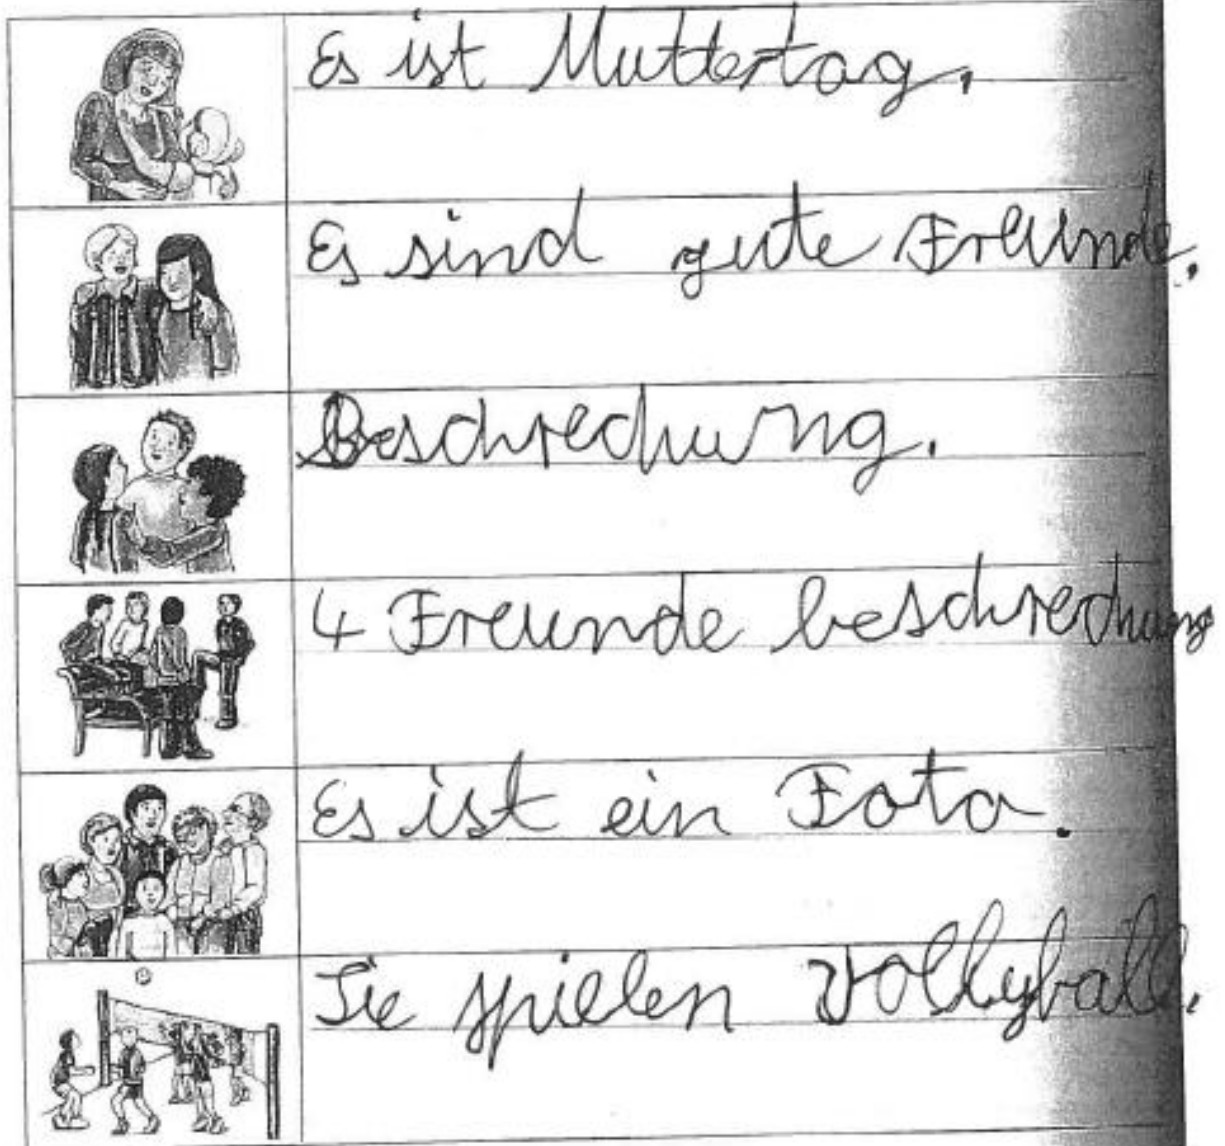 Es ist Muttertag.
Es sind gute Freunde.
Beschrechung.
4 Freunde beschrechung
Es ist ein Foto.
Sie spielen Vollyball.